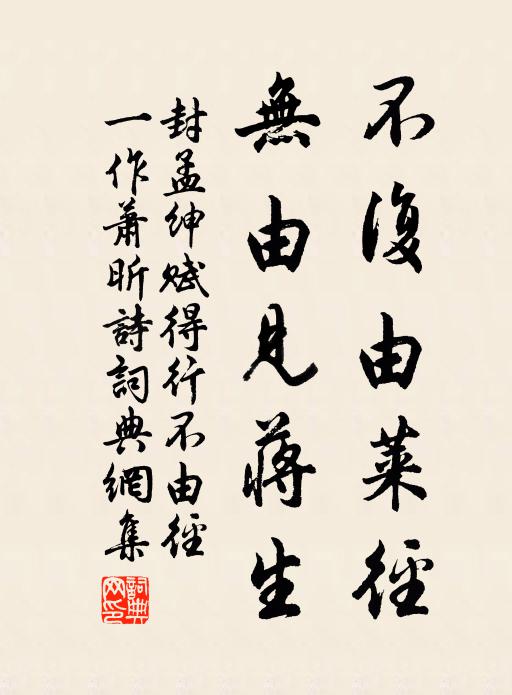 不復由萊徑
無由見蔣生
封孟紳賦得行不由徑
一作蕭昕詩詞典網集
詞典網印